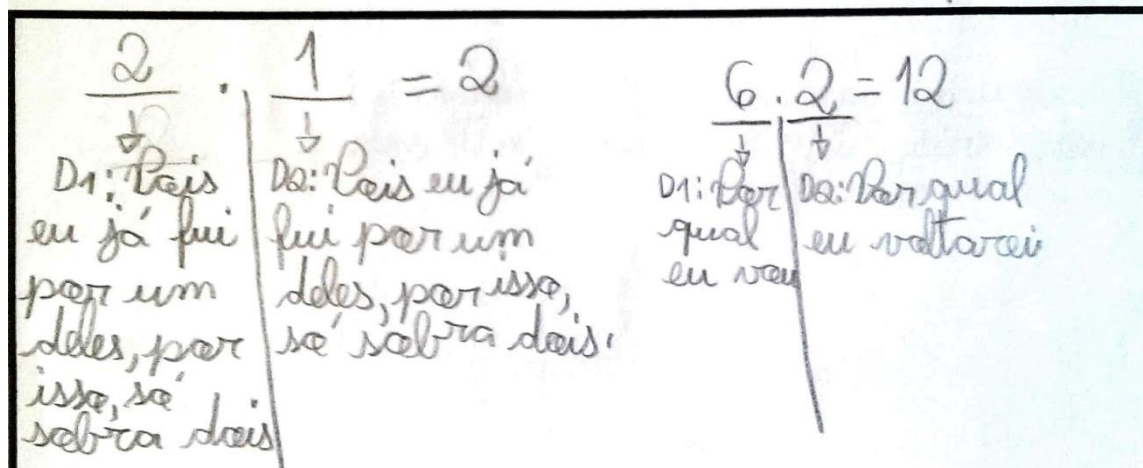 2 . 1 = 2
D1: Pois
eu já fui
por um
deles, por
isso, só
sobra dois
D2: Pois eu já
fui por um
deles, por isso,
só sobra dois.
6 . 2 = 12
D1: Por
qual
eu vou
D2: Por qual
eu voltarei